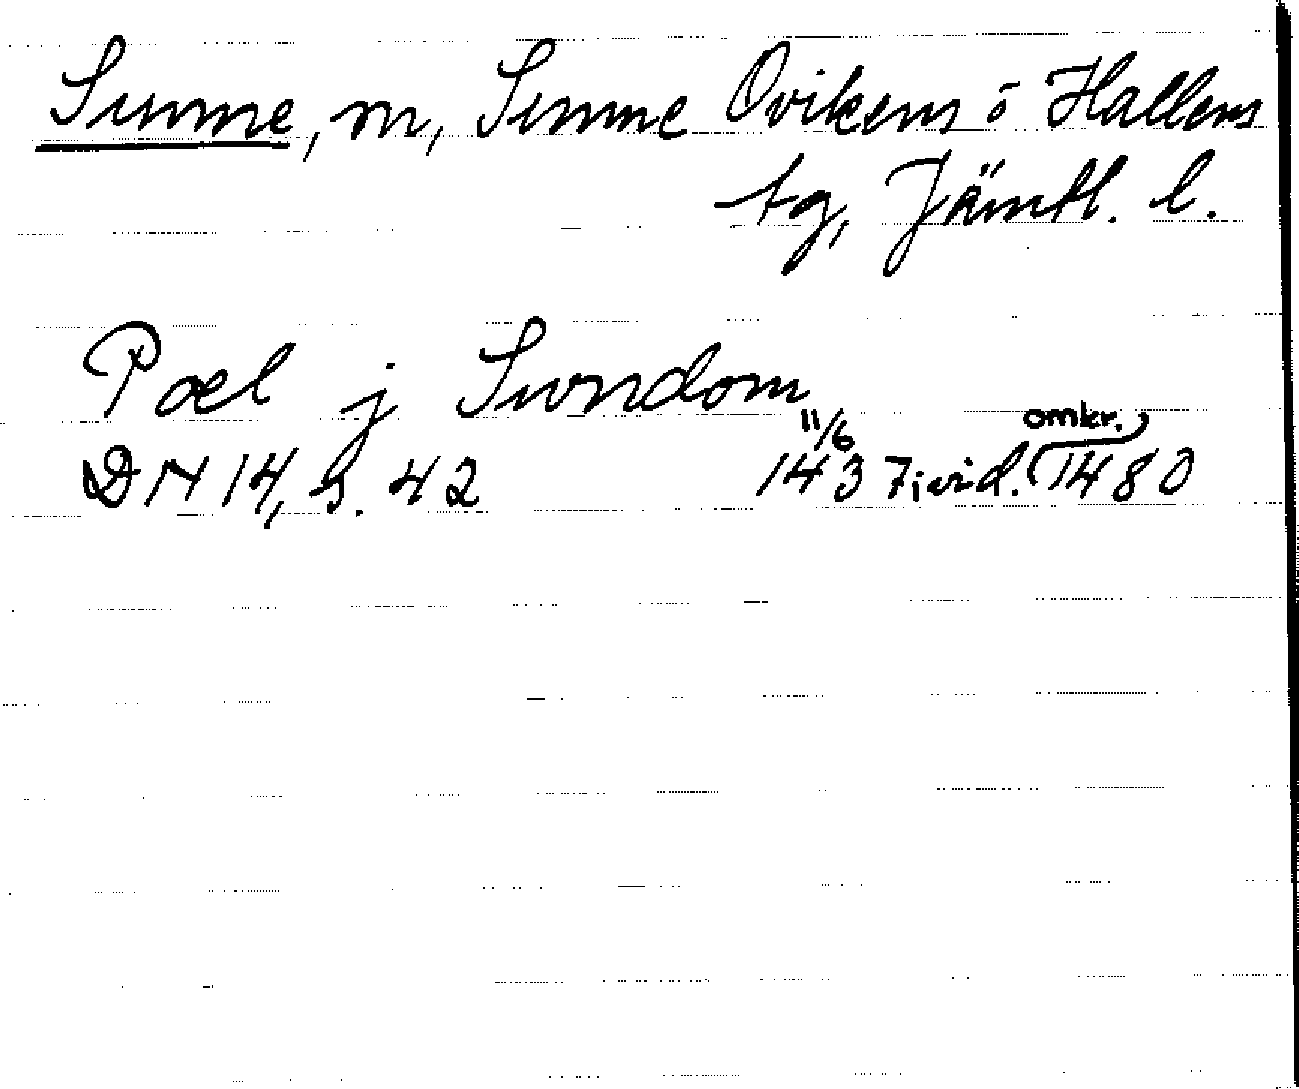 Sunne, m, Sunne Ovikens ö Hallens
tg, Jämtl. l.
Pæl j Swndom
omkr.
DN 14, s. 42 11/6 1437 i vid. (1480